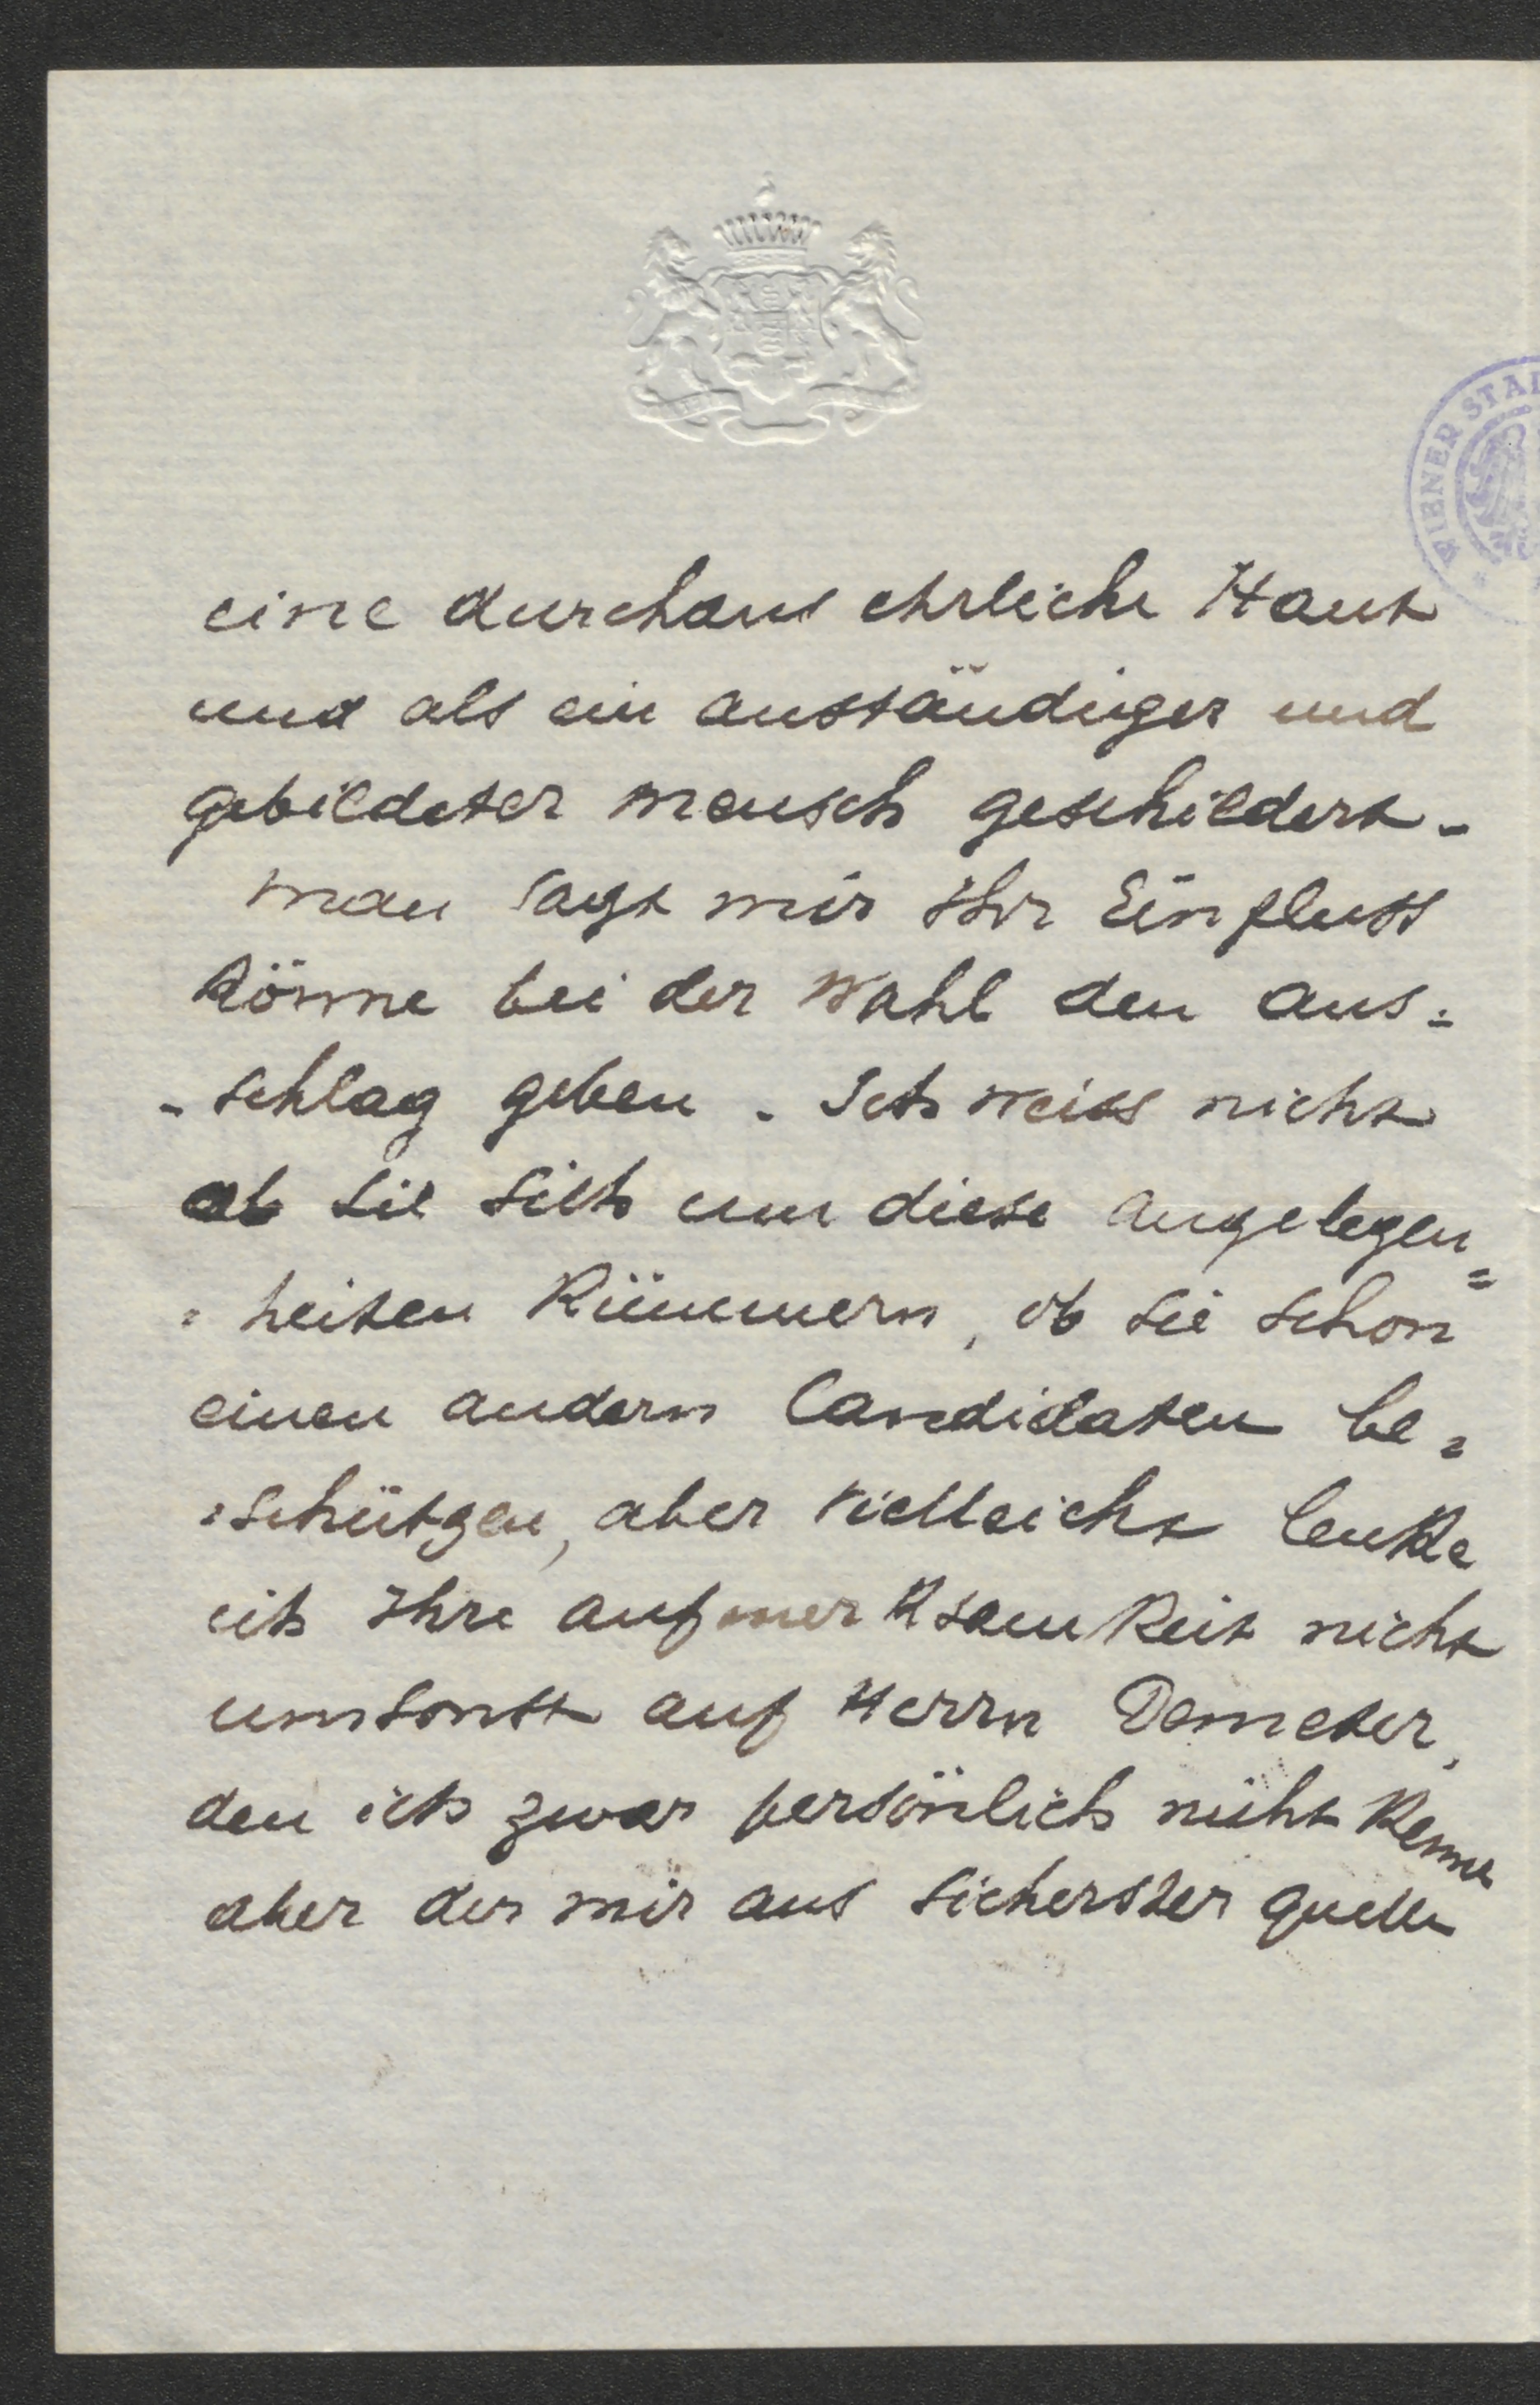 WIENER STAD
eine durchaus ehrliche Haut
und als ein anständiger und
gebildeter Mensch geschildert -
Man sagt mir Ihr Einfluss
könne bei der Wahl den Aus=
-schlag geben. Ich weiss nicht
ob Sie sich um diese Angelegen=
=heiten kümmern, ob Sie schon
einen andern Candidaten be=
=schützen, aber vielleicht lenke
ich Ihre Aufmerksamkeit nicht
umsonst auf Herrn Demeter,
den ich zwar persönlich nicht kenne
aber der mir aus sicherster Quelle